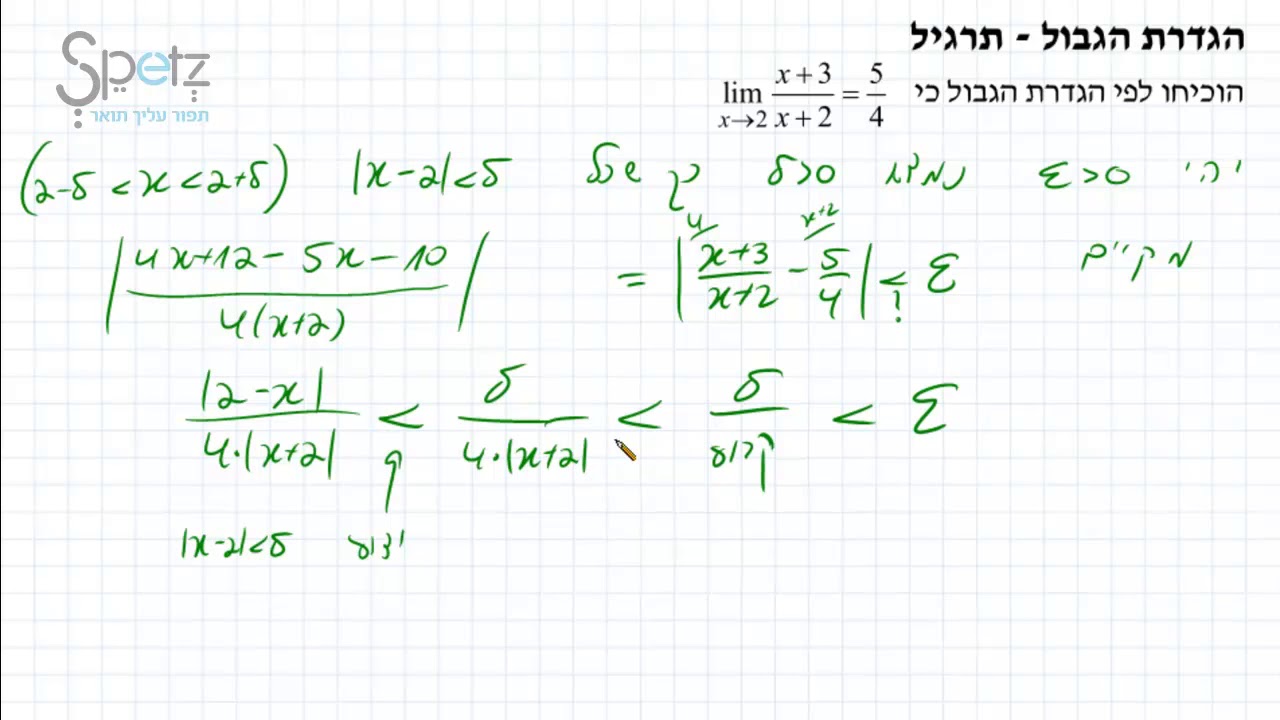 Spetz
תפור עליך תואר
הגדרת הגבול - תרגיל
הוכיחו לפי הגדרת הגבול כי lim x→2 (x+3)/(x+2) = 5/4
יהי ε>0 נמצא δ>0 כך שלכל |x-2|<δ (2-δ<x<2+δ)
מקיים
|(4x+12-5x-10)/(4(x+2))| = |(x+3)/(x+2) - 5/4| < ε
4 x+2 ?
|2-x|/(4·|x+2|) < δ/(4·|x+2|) < δ/קבוע < ε
ידוע |x-2|<δ